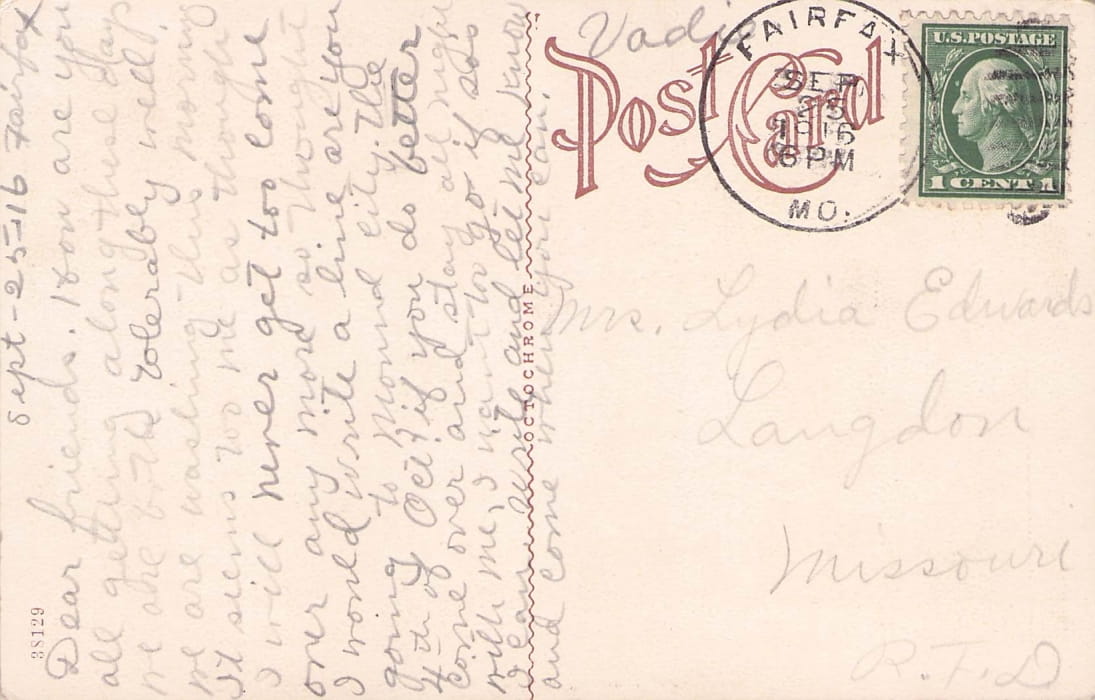 Sept-25-16 Fairfax
Dear friends. How are you
all getting along these days
we are both tolerably well,
we are washing this morning
it seems too me as though
I will never get too come
over any more so thout
I would write a line are you
going to mound city the
4th of Oct if you do better
come over and stay all night
with me, I want to go if so
I can. write and let me know
and come when you can.
Vadi
Post Card
FAIRFAX
SEP
25
1916
6 PM
MO.
U.S. POSTAGE
1 CENT 1
Mrs. Lydia Edwards
Langdon
Missouri
R.F.D
OCTOCHROME
38129